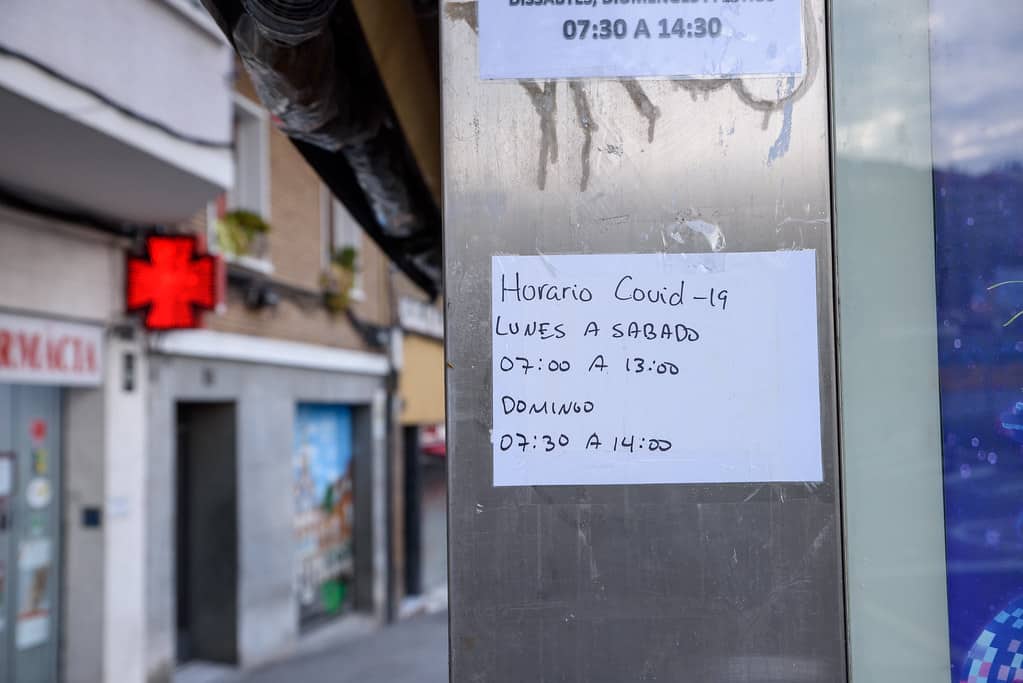 07:30 A 14:30
Horario Covid-19
LUNES A SABADO
07:00 A 13:00
DOMINGO
07:30 A 14:00
RMÀCIA